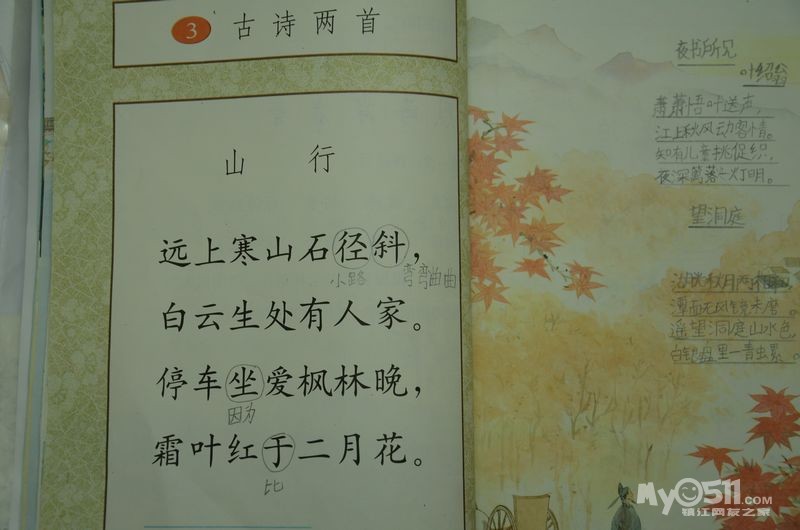 3 古诗两首
山行
远上寒山石径斜，
小路 弯弯曲曲
白云生处有人家。
停车坐爱枫林晚，
因为
霜叶红于二月花。
比
夜书所见
叶绍翁
萧萧悟叶送声，
江上秋风动客情。
知有儿童挑促织，
夜深篱落一灯明。
望洞庭
湖光秋月两相
潭面无风镜未磨。
遥望洞庭山水色，
白银盘里一青螺。
My0511.com
镇江网友之家